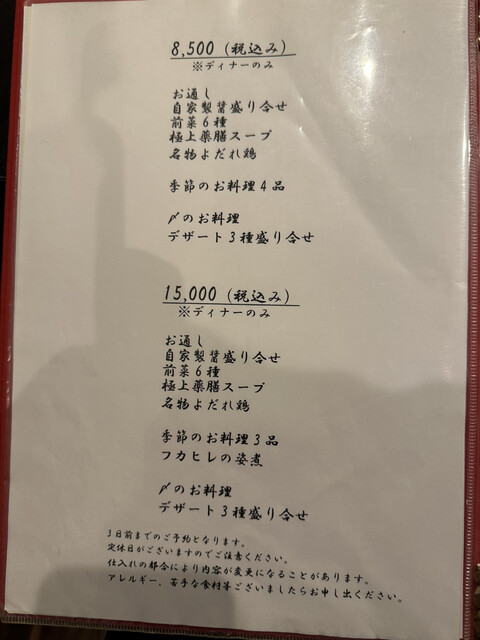 8,500（税込み）
※ディナーのみ
お通し
自家製醤盛り合せ
前菜6種
極上薬膳スープ
名物よだれ鶏
季節のお料理4品
〆のお料理
デザート3種盛り合せ
15,000（税込み）
※ディナーのみ
お通し
自家製醤盛り合せ
前菜6種
極上薬膳スープ
名物よだれ鶏
季節のお料理3品
フカヒレの姿煮
〆のお料理
デザート3種盛り合せ
3日前までのご予約となります。
定休日がございますのでご注意ください。
仕入れの都合により内容が変更になることがあります。
アレルギー、苦手な食材等ございましたらお申し出ください。